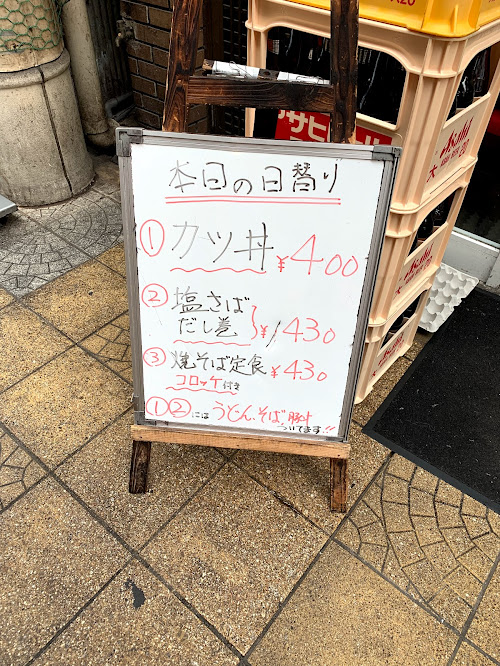 本日の日替り
① カツ丼 ¥400
② 塩さば
だし巻 ¥430
③ 焼そば定食 ¥430
コロッケ付き
①②には うどん、そば
ついてます!!
アサヒ
Asahi
Asahi
Asahi